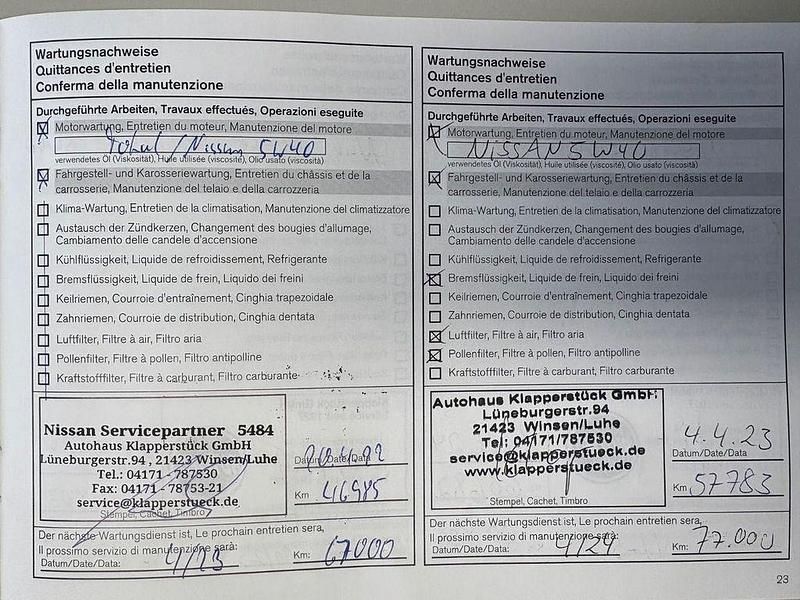 Wartungsnachweise
Quittances d'entretien
Conferma della manutenzione
Durchgeführte Arbeiten, Travaux effectués, Operazioni eseguite
Motorwartung, Entretien du moteur, Manutenzione del motore
Total/Nissan 5W40
verwendetes Öl (Viskosität), Huile utilisée (viscosité), Olio usato (viscosità)
Fahrgestell- und Karosseriewartung, Entretien du châssis et de la
carrosserie, Manutenzione del telaio e della carrozzeria
Klima-Wartung, Entretien de la climatisation, Manutenzione del climatizzatore
Austausch der Zündkerzen, Changement des bougies d'allumage,
Cambiamento delle candele d'accensione
Kühlflüssigkeit, Liquide de refroidissement, Refrigerante
Bremsflüssigkeit, Liquide de frein, Liquido dei freini
Keilriemen, Courroie d'entraînement, Cinghia trapezoidale
Zahnriemen, Courroie de distribution, Cinghia dentata
Luftfilter, Filtre à air, Filtro aria
Pollenfilter, Filtre à pollen, Filtro antipolline
Kraftstofffilter, Filtre à carburant, Filtro carburante
Nissan Servicepartner 5484
Autohaus Klapperstück GmbH
Lüneburgerstr.94 , 21423 Winsen/Luhe
Tel.: 04171 - 787530
Fax: 04171 - 78753-21
service@klapperstueck.de
Stempel, Cachet, Timbro
Datum/Date/Data
Km 46985
Der nächste Wartungsdienst ist, Le prochain entretien sera,
Il prossimo servizio di manutenzione sarà:
Datum/Date/Data: 4/23
Km: 67000
Wartungsnachweise
Quittances d'entretien
Conferma della manutenzione
Durchgeführte Arbeiten, Travaux effectués, Operazioni eseguite
Motorwartung, Entretien du moteur, Manutenzione del motore
NISSAN 5W40
verwendetes Öl (Viskosität), Huile utilisée (viscosité), Olio usato (viscosità)
Fahrgestell- und Karosseriewartung, Entretien du châssis et de la
carrosserie, Manutenzione del telaio e della carrozzeria
Klima-Wartung, Entretien de la climatisation, Manutenzione del climatizzatore
Austausch der Zündkerzen, Changement des bougies d'allumage,
Cambiamento delle candele d'accensione
Kühlflüssigkeit, Liquide de refroidissement, Refrigerante
Bremsflüssigkeit, Liquide de frein, Liquido dei freini
Keilriemen, Courroie d'entraînement, Cinghia trapezoidale
Zahnriemen, Courroie de distribution, Cinghia dentata
Luftfilter, Filtre à air, Filtro aria
Pollenfilter, Filtre à pollen, Filtro antipolline
Kraftstofffilter, Filtre à carburant, Filtro carburante
Autohaus Klapperstück GmbH
Lüneburgerstr.94
21423 Winsen/Luhe
Tel: 04171/787530
service@klapperstueck.de
www.klapperstueck.de
Stempel, Cachet, Timbro
4.4.23
Datum/Date/Data
Km 57783
Der nächste Wartungsdienst ist, Le prochain entretien sera,
Il prossimo servizio di manutenzione sarà:
Datum/Date/Data: 4/24
Km: 77.000
23